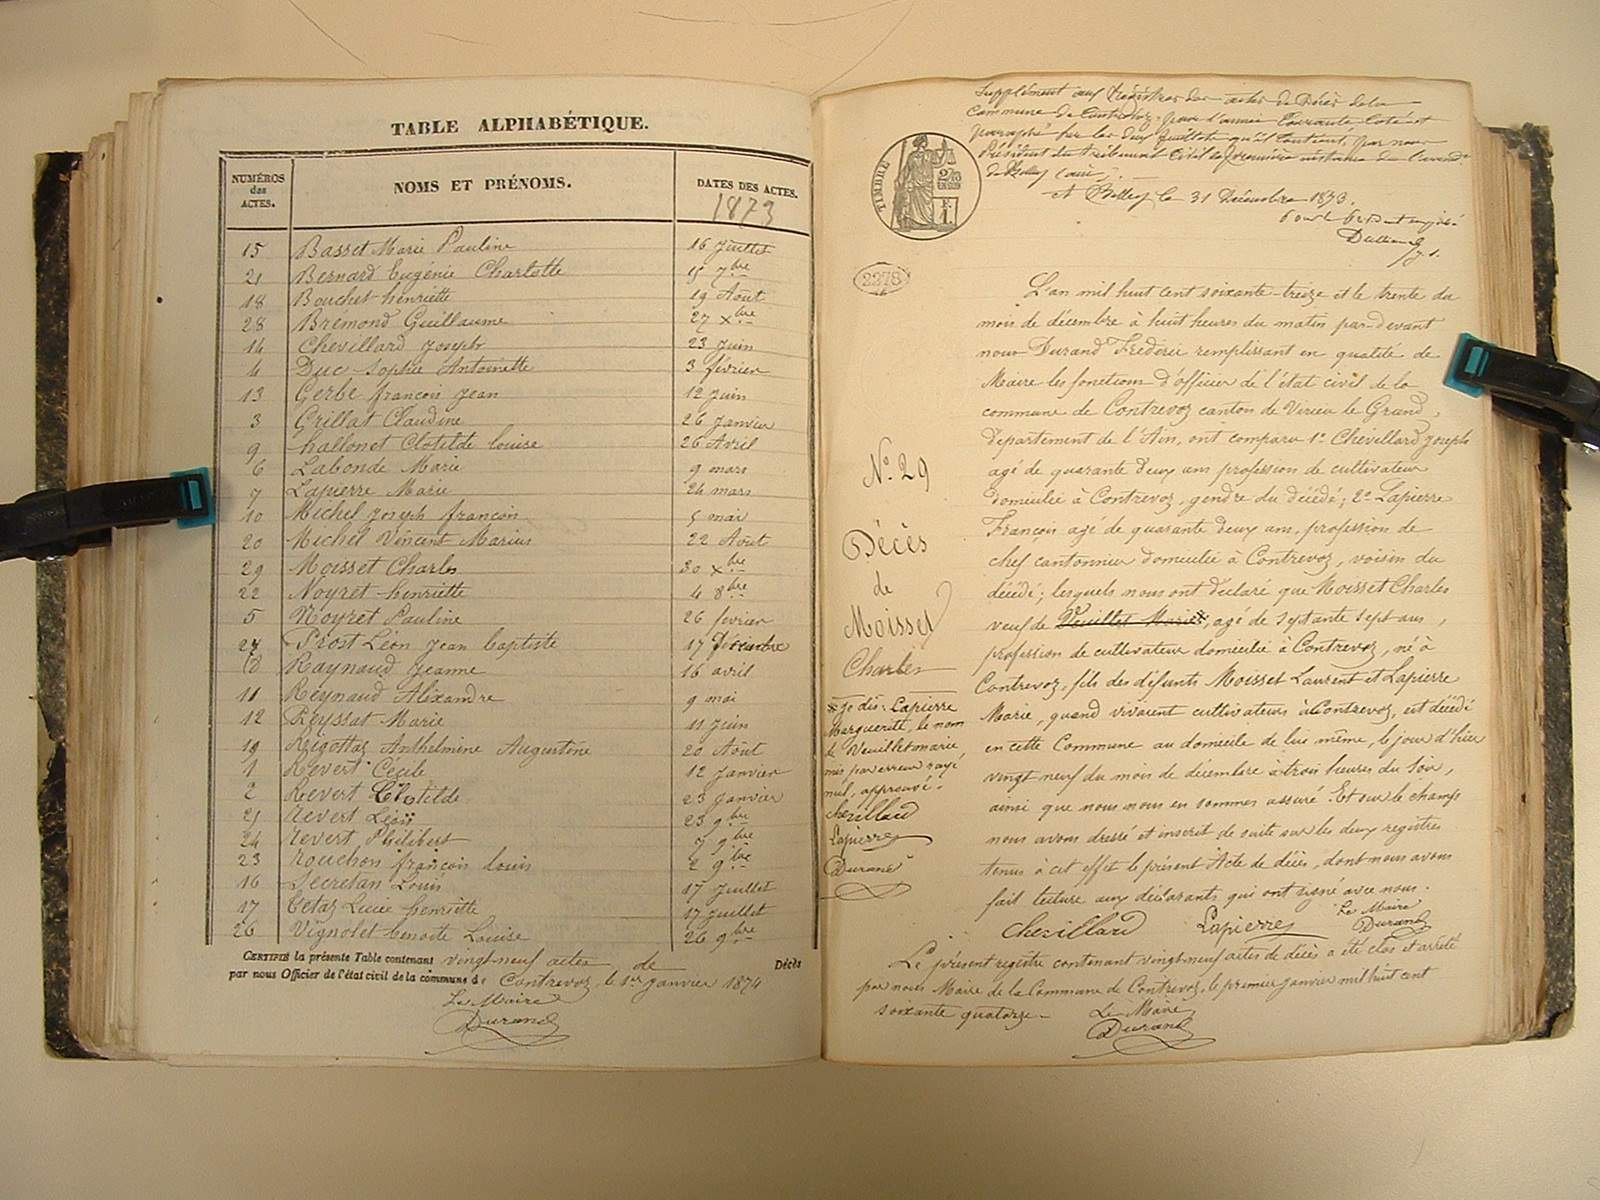 TABLE ALPHABÉTIQUE.
NUMÉROS des ACTES. NOMS ET PRÉNOMS. DATES DES ACTES.
1873
15 Basset Marie Pauline 16 Juillet
21 Bernard Eugénie Charlotte 15 7bre
18 Bouchet henriette 19 Août
28 Brémond Guillaume 27 xbre
14 Chevillard Joseph 23 Juin
4 Duc Sophie Antoinette 3 février
13 Gerbe françois Jean 12 Juin
3 Grillat Claudine 26 Janvier
9 hallonet Clotilde Louise 26 Avril
6 Labonde Marie 9 mars
7 Lapierre Marie 24 mars
10 Michel Joseph françois 5 mai
20 Michel Vincent Marius 22 Août
29 Moisset Charles 30 xbre
22 Noyret henriette 4 8bre
5 Noyret Pauline 26 février
27 Prost Léon Jean Baptiste 17 Décembre
8 Raynaud Jeanne 16 avril
11 Reynaud Alexandre 9 mai
12 Reyssat Marie 11 Juin
19 Rigottaz Anthelmine Augustine 20 Août
1 Revert Cécile 12 Janvier
2 Revert Clotilde 23 Janvier
21 Revert Léon 23 9bre
24 Revert Philibert 7 9bre
23 Rouchon françois Louis 2 9bre
16 Secretan Louis 17 Juillet
17 Tetaz Lucie henriette 17 Juillet
26 Vignolet benoite Louise 26 9bre
CERTIFIÉ la présente Table contenant vingt-neuf actes de Décès
par nous Officier de l'état civil de la commune de Contrevoz, le 1er Janvier 1874
Le Maire
Durand
Supplément aux Registres des actes de Décès de la
Commune de Contrevoz, pour l'année Courante Coté et
paraphé par les deux feuillets qu'il Contient, par nous
Président du tribunal Civil de première instance de l'arrondt
de Belley (ain).
A Belley le 31 Décembre 1873.
TIMBRE
2/10 EN SUS
F. 1.
2278
L'an mil huit cent soixante-treize et le trente du
mois de décembre à huit heures du matin par-devant
nous Durand Frédéric remplissant en qualité de
Maire les fonctions d'officier de l'état civil de la
commune de Contrevoz canton de Virieu le Grand,
département de l'Ain, ont comparu 1o Chevillard Joseph
agé de quarante deux ans profession de cultivateur
domicilié à Contrevoz, gendre du décédé; 2o Lapierre
François agé de quarante deux ans, profession de
chef cantonnier domicilié à Contrevoz, voisin du
décédé; lesquels nous ont déclaré que Moisset Charles
veuf de Veuillet Marie*, agé de septante sept ans,
profession de cultivateur domicilié à Contrevoz, né à
Contrevoz, fils des défunts Moisset Laurent et Lapierre
Marie, quand vivaient cultivateurs à Contrevoz, est décédé
en cette Commune au domicile de lui même, le jour d'hier
vingt neuf du mois de décembre à trois heures du soir,
ainsi que nous nous en sommes assuré. Et sur le champ
nous avons dressé et inscrit de suite sur les deux registres
tenus à cet effet le présent Acte de décès, dont nous avons
fait lecture aux déclarants qui ont signé avec nous.
Chevillard Lapierre Le Maire
Durand
No 29
Décès
de
Moisset
Charles
* je dis: Lapierre
Marguerite, le nom
de Veuillet marie,
mis par erreur rayé
nul, approuvé.
Chevillard
Lapierre
Durand
Le présent registre contenant vingt-neuf actes de décès a été clos et arrêté
par nous Maire de la Commune de Contrevoz, le premier janvier mil huit cent
soixante quatorze. Le Maire
Durand